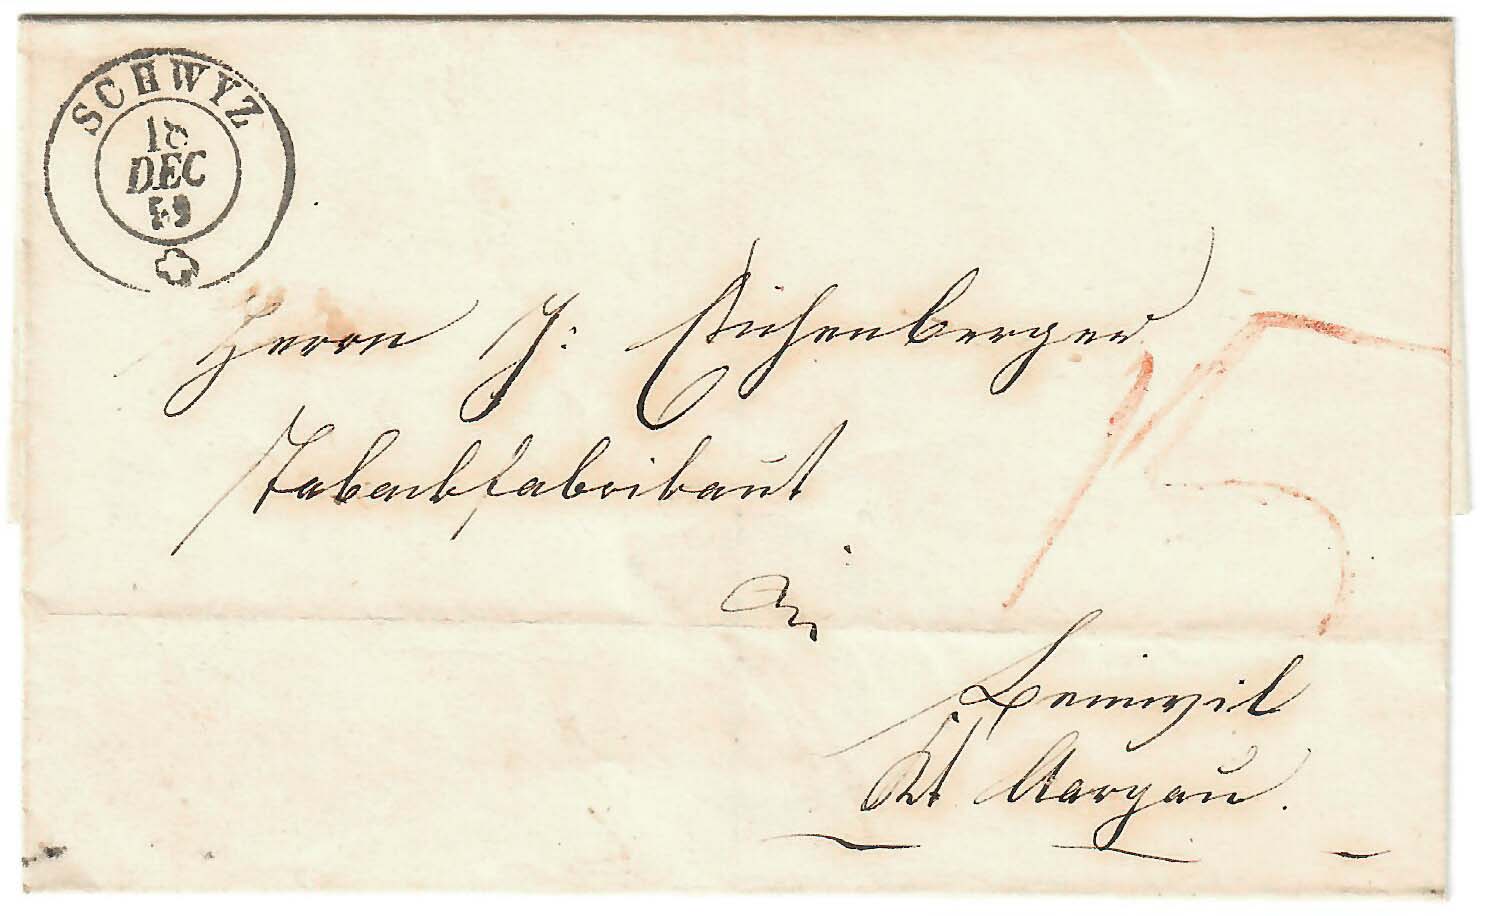 SCHWYZ
18
DEC
59
Herrn J: Eichenberger
Tabackfabrikant
in
15
Beinwyl
Kt Aargau.